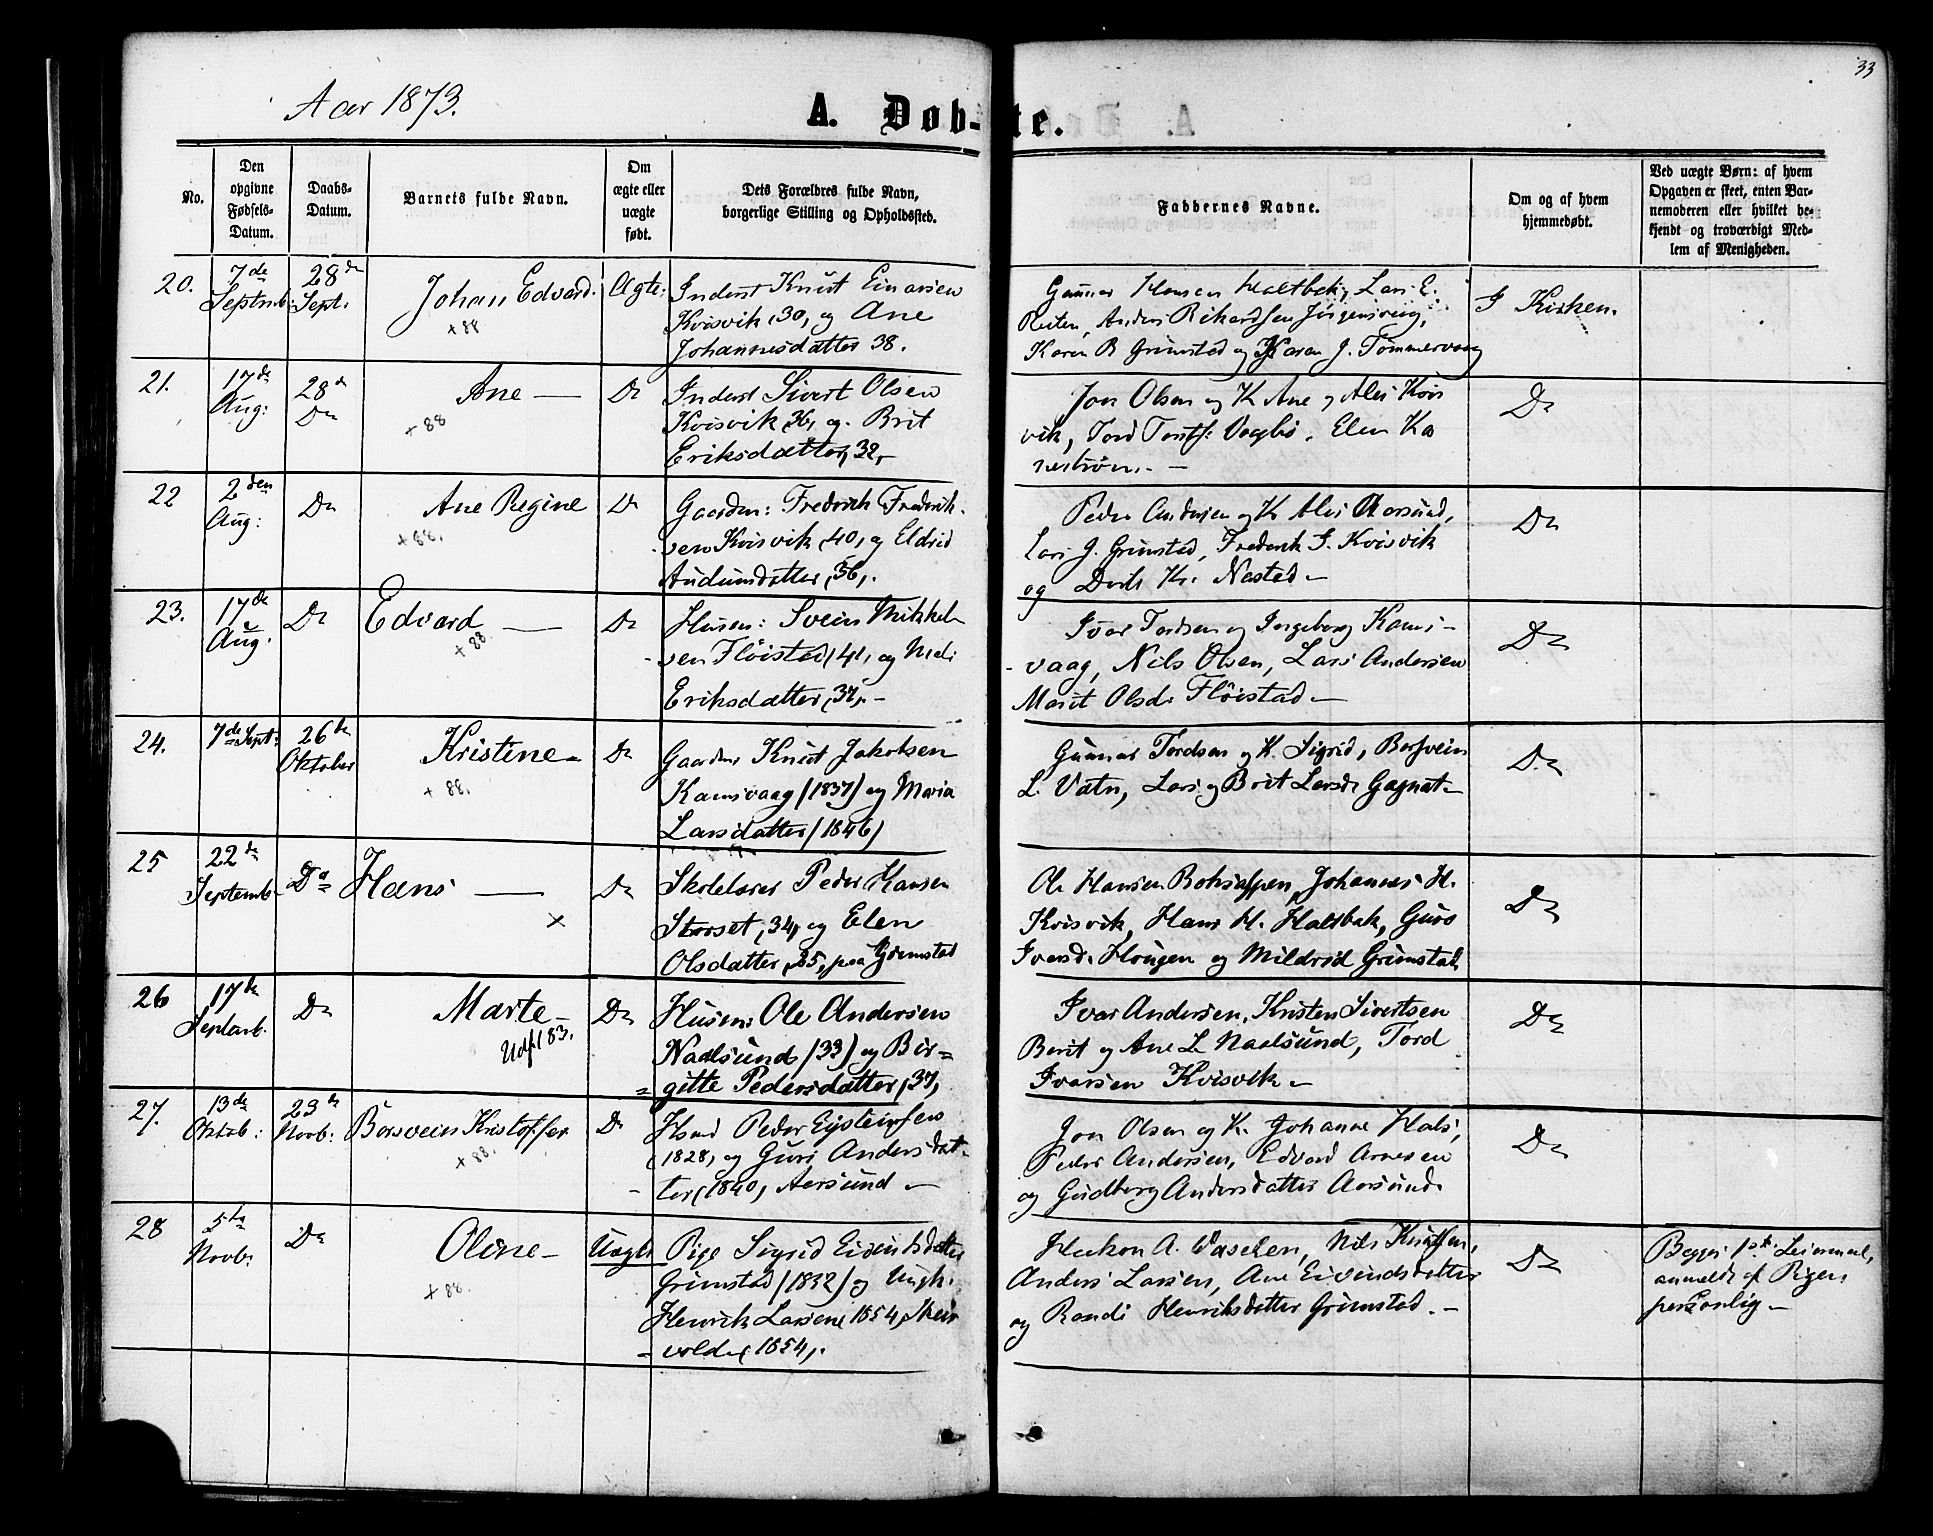 33
Aar 1873.
A. Døbte.
No.
Den opgivne Fødsels-Datum.
Daabs-Datum.
Barnets fulde Navn.
Om ægte eller uægte født.
Dets Forældres fulde Navn, borgerlige Stilling og Opholdssted.
Faddernes Navne.
Om og af hvem hjemmedøbt.
Ved uægte Børn: af hvem Opgaven er skeet, enten Barnemoderen eller hvilket bekjendt og troværdigt Medlem af Menigheden.
20.
7de Septmb:
28de Sept.
Johan Edvard.
+88
Ægte:
Inderst Knut Einarsen
Kvisvik, 30, og Ane
Johannesdatter 38.
Gunnar Hansen Haltbak, Lars E.
Reiten, Anders Rikardsen Jörgensvaag,
Karen B Grimstad og Karen J. Tömmervaag
I Kirken.
21.
17de Aug:
28de Do
Ane —
+88
Do
Inderst Sivert Olsen
Kvisvik, 36, og Brit
Eriksdatter, 32,-
Jon Olsen og K Ane og Ales Kvis
vik, Tord Vaagbö, Elen Ka
neström. —
Do
22
2den Aug:
Do
Ane Regine
+88.
Do
Gaardm: Frederik Frederik-
sen Kvisvik, 40, og Eldrid
Audunsdatter, 36,.
Peder Andersen og K Ales Aarsund,
Lars J. Grimstad, Frederik I. Kvisvik
og K. Nastad —
Do
23.
17de Aug.
Do
Edvard —
+88.
Do
Husm: Svein Mikkel-
sen Flöistad, 41, og
Eriksdatter, 37,.-
Ivar Tordsen og Ingeborg Kams-
vaag, Nils Olsen, Lars Andersen
Marit Olsdr Flöistad —
Do
24.
7de Sept:
26de Oktober
Kristine —
+88.
Do
Gaardm: Knut Jakobsen
Kamsvaag (1837) og Maria
Larsdatter (1846)
Gunnar Tordsen og K. Sigrid, Borsvein
L. Vatn, Lars og Brit Larsdr Gagnat —
Do
25
22de Septemb-
Do
Hans —
×
Do
Skolelærer Peder Hansen
Storset, 34, og Elen
Olsdatter, 25, paa Grimstad
Ole Hansen Botsoppen, Johannes H.
Kvisvik, Hans H. Haltbak, Guro
Iversdr Hougen og Mildrid Grimstad
Do
26
17de Septemb.
Do
Marte —
Udfl 83.
Do
Husm: Ole Andersen
Nadlsund (33) og Bir=
=gitte Pedersdatter, 37,
Ivar Andersen, Kristen Sivertsen
Berit og Ane L Nadlsund, Tord
Ivarsen Kvisvik —
Do
27.
13de Oktob:
23de Novb:
Borsvein Kristoffer
+88.
Do
Husmd Peder Eysteinsen
(1828, og Guri Andersdat-
ter (1840, Aarsund —
Jon Olsen og K. Johanne Hals,
Peder Andersen, Edvard Arnesen
og Gudberg Andersdatter Aarsund.
Do
28
5te Novb:
Do
Oline —
+88.
Uægte
Pige Sigrid Eivindsdatter
Grimstad (1832) og Ungk.
Henrik Larsen, 1854,
volde, (1854,.
Haakon A. Vaselen, Nils Knutsen,
Anders Larsen, Ane Eivindsdatter
og Randi Henriksdatter Grimstad. —
Do
Begges 1ste Leiermaal,
anmeldt af Pigen
personlig —